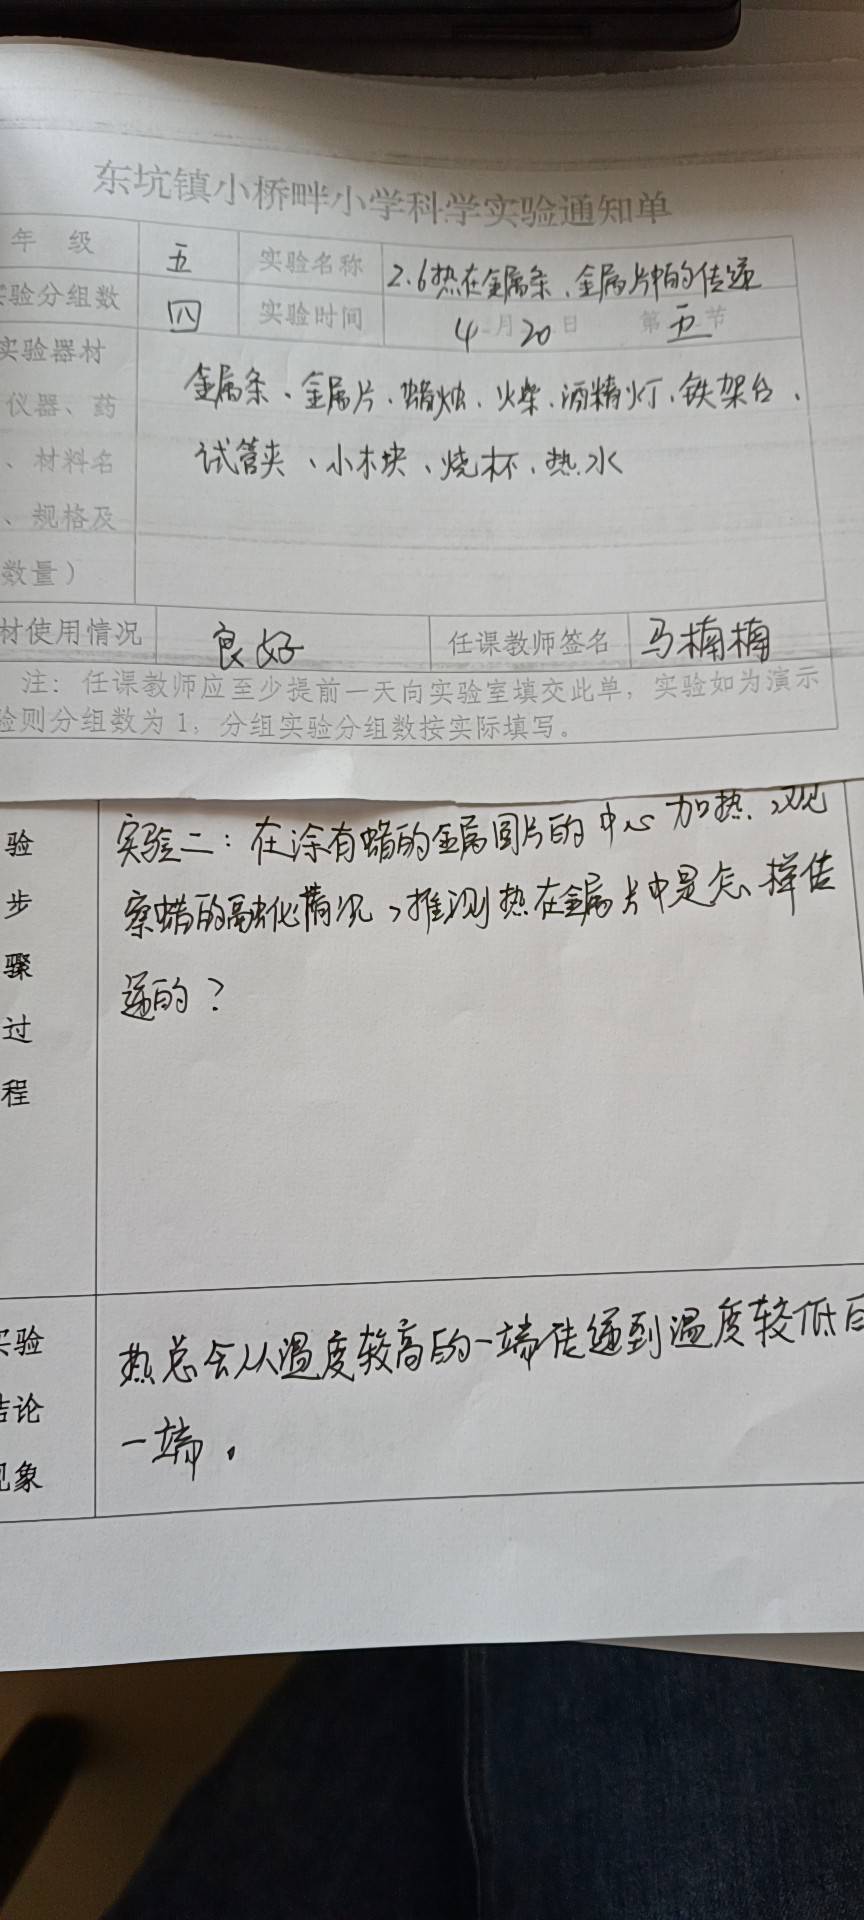 东坑镇小桥畔小学科学实验通知单
年 级 五 实验名称 2.6热在金属条、金属片中的传递
实验分组数 四 实验时间 4月20日 第五节
实验器材 金属条、金属片、蜡烛、火柴、酒精灯、铁架台、
仪器、药
、材料名 试管夹、小木块、烧杯、热水
、规格及
数量)
材使用情况 良好 任课教师签名 马楠楠
注:任课教师应至少提前一天向实验室填交此单,实验如为演示
验则分组数为1,分组实验分组数按实际填写。
验 实验二:在涂有蜡的金属圆片的中心加热,观
步 察蜡的融化情况,推测热在金属片中是怎样传
骤 递的?
过
程
实验 热总会从温度较高的一端传递到温度较低的
结论 一端。
现象